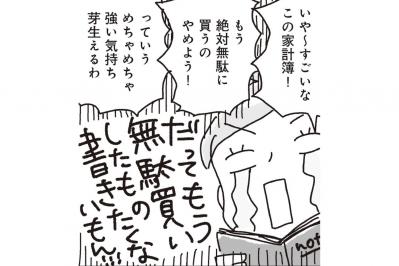 いや〜すごいな
この家計簿!
もう
絶対無駄に
買うの
やめよう!
っていう
めちゃめちゃ
強い気持ち
芽生えるわ
だってもう
無駄買い
したもの
書きたくな
いもん!!!
not